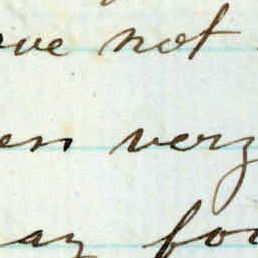 ve not
en very
ay foo